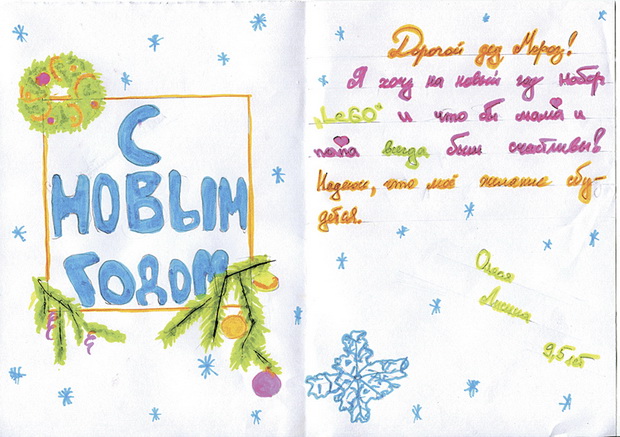 С
НОВЫМ
ГОДОМ
Дорогой дед Мороз!
Я хочу на новый год набор
"LeGO" и что бы мама и
папа всегда были счастливы!
Надеюс, что моё желание сбу-
дется.
Олеся
Лисина
9,5 лет